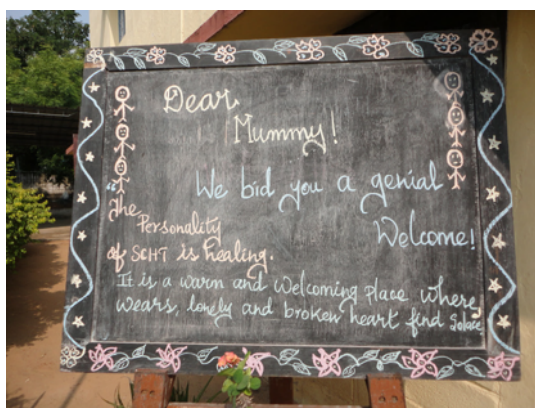 Dear
Mummy!
We bid you a genial
Welcome!
"The
Personality
of SCHT is healing.
It is a warm and welcoming place where
wears, lonely and broken heart find Solace